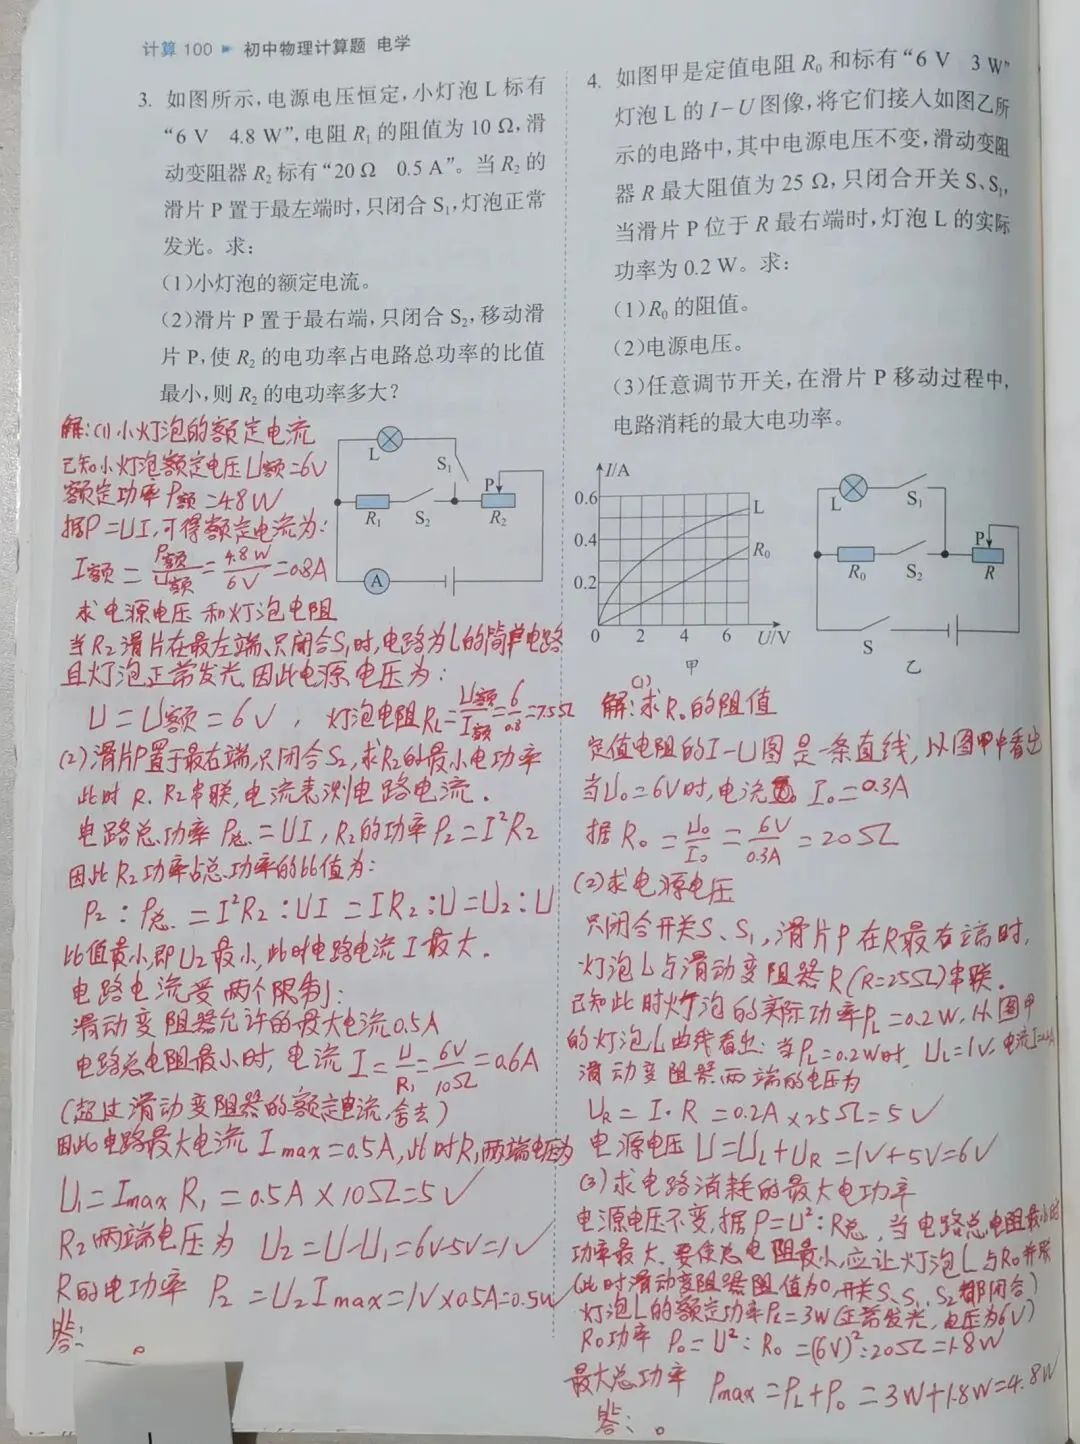 计算 100 ▶ 初中物理计算题 电学
3. 如图所示,电源电压恒定,小灯泡 L 标有
“6 V 4.8 W”,电阻 R₁ 的阻值为 10 Ω,滑
动变阻器 R₂ 标有“20 Ω 0.5 A”。当 R₂ 的
滑片 P 置于最左端时,只闭合 S₁,灯泡正常
发光。求:
(1)小灯泡的额定电流。
(2)滑片 P 置于最右端,只闭合 S₂,移动滑
片 P,使 R₂ 的电功率占电路总功率的比值
最小,则 R₂ 的电功率多大?
L
S₁
P
R₁
S₂
R₂
A
解:(1)小灯泡的额定电流
已知小灯泡额定电压U额=6V
额定功率P额=4.8W
据P=UI,可得额定电流为:
I额=P额/U额=4.8W/6V=0.8A
求电源电压和灯泡电阻
当R₂滑片在最左端、只闭合S₁时,电路为L的简单电路
且灯泡正常发光,因此电源电压为:
U=U额=6V,灯泡电阻RL=U额/I额=6/0.8=7.5Ω
(2)滑片P置于最右端,只闭合S₂,求R₂的最小电功率
此时R₁R₂串联,电流表测电路电流.
电路总功率P总=UI,R₂的功率P₂=I²R₂
因此R₂功率占总功率的比值为:
P₂:P总=I²R₂:UI=IR₂:U=U₂:U
比值最小,即U₂最小,此时电路电流I最大.
电路电流受两个限制:
滑动变阻器允许的最大电流0.5A
电路总电阻最小时,电流I=U/R₁=6V/10Ω=0.6A
(超过滑动变阻器的额定电流,舍去)
因此电路最大电流Imax=0.5A,此时R₁两端电压为
U₁=ImaxR₁=0.5A×10Ω=5V
R₂两端电压为 U₂=U-U₁=6V-5V=1V
R的电功率 P₂=U₂Imax=1V×0.5A=0.5W
答: 。
4. 如图甲是定值电阻 R₀ 和标有“6 V 3 W”
灯泡 L 的 I-U 图像,将它们接入如图乙所
示的电路中,其中电源电压不变,滑动变阻
器 R 最大阻值为 25 Ω,只闭合开关 S、S₁,
当滑片 P 位于 R 最右端时,灯泡 L 的实际
功率为 0.2 W。求:
(1)R₀ 的阻值。
(2)电源电压。
(3)任意调节开关,在滑片 P 移动过程中,
电路消耗的最大电功率。
I/A
0.6
L
0.4
R₀
0.2
0 2 4 6 U/V
甲
L
S₁
P
R₀
S₂
R
S
乙
解:(1)求R₀的阻值
定值电阻的I-U图是一条直线,从图甲中看出
当U₀=6V时,电流 I₀=0.3A
据R₀=U₀/I₀=6V/0.3A=20Ω
(2)求电源电压
只闭合开关S、S₁,滑片P在R最右端时,
灯泡L与滑动变阻器R(R=25Ω)串联.
已知此时灯泡的实际功率PL=0.2W,从图甲
的灯泡L曲线看出:当PL=0.2W时,UL=1V,电流I=0.2A
滑动变阻器两端的电压为
UR=I·R=0.2A×25Ω=5V
电源电压U=UL+UR=1V+5V=6V
(3)求电路消耗的最大电功率
电源电压不变,据P=U²:R总,当电路总电阻最小时
功率最大.要使总电阻最小,应让灯泡L与R₀并联
(此时滑动变阻器阻值为0,开关S、S₁、S₂都闭合)
灯泡L的额定功率PL=3W(正常发光,电压为6V)
R₀功率 P₀=U²:R₀=(6V)²:20Ω=1.8W
最大总功率 Pmax=PL+P₀=3W+1.8W=4.8W
答: 。